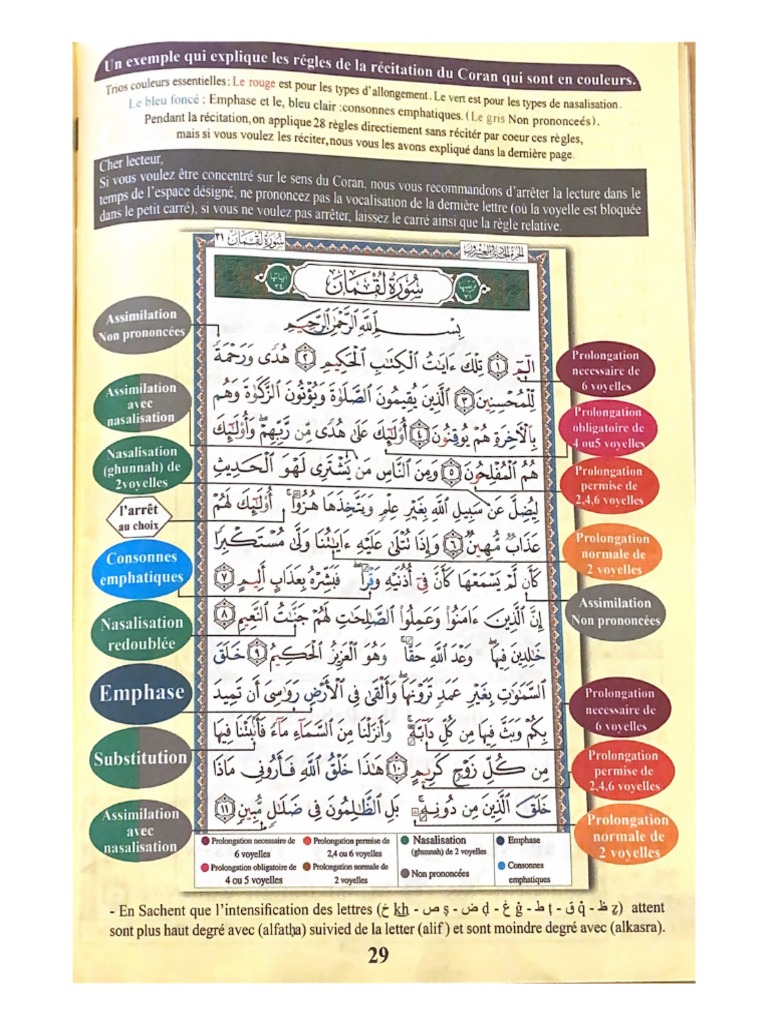 Un exemple qui explique les régles de la récitation du Coran qui sont en couleurs.
Trios couleurs essentielles : Le rouge est pour les types d'allongement. Le vert est pour les types de nasalisation.
Le bleu foncé : Emphase et le, bleu clair :consonnes emphatiques. (Le gris Non prononceés).
Pendant la récitation,on applique 28 règles directiement sans récité par coeur ces règles,
mais si vous voulez les réciter,nous vous les avons expliqué dans la dernière page.
Cher lecteur,
Si vous voulez être concentré sur le sens du Coran, nous vous recommandons d'arrêter la lecture dans le
temps de l'espace désigné, ne prononcez pas la vocalisation de la dernière lettre (où la voyelle est bloquée
dans le petit carré), si vous ne voulez pas arrêter, laissez le carré ainsi que la règle relative.
سُورَةُ لُقْمَان ٣١
الجزء الحادي والعشرون
آياتها ٣٤
سُورَةُ لُقْمَان
ترتيبها ٣١
بِسْمِ اللَّهِ الرَّحْمَٰنِ الرَّحِيمِ
الٓمٓ ١ تِلْكَ ءَايَٰتُ الْكِتَٰبِ الْحَكِيمِ ٢ هُدًى وَرَحْمَةً
لِّلْمُحْسِنِينَ ٣ الَّذِينَ يُقِيمُونَ الصَّلَوٰةَ وَيُؤْتُونَ الزَّكَوٰةَ وَهُم
بِالْأَخِرَةِ هُمْ يُوقِنُونَ ٤ أُولَٰٓئِكَ عَلَىٰ هُدًى مِّن رَّبِّهِمْ وَأُولَٰٓئِكَ
هُمُ الْمُفْلِحُونَ ٥ وَمِنَ النَّاسِ مَن يَشْتَرِى لَهْوَ الْحَدِيثِ
لِيُضِلَّ عَن سَبِيلِ اللَّهِ بِغَيْرِ عِلْمٍ وَيَتَّخِذَهَا هُزُوًا أُولَٰٓئِكَ لَهُمْ
عَذَابٌ مُّهِينٌ ٦ وَإِذَا تُتْلَىٰ عَلَيْهِ ءَايَٰتُنَا وَلَّىٰ مُسْتَكْبِرًا
كَأَن لَّمْ يَسْمَعْهَا كَأَنَّ فِىٓ أُذُنَيْهِ وَقْرًا فَبَشِّرْهُ بِعَذَابٍ أَلِيمٍ ٧
إِنَّ الَّذِينَ ءَامَنُوا وَعَمِلُوا الصَّٰلِحَٰتِ لَهُمْ جَنَّٰتُ النَّعِيمِ ٨
خَٰلِدِينَ فِيهَا وَعْدَ اللَّهِ حَقًّا وَهُوَ الْعَزِيزُ الْحَكِيمُ ٩ خَلَقَ
السَّمَٰوَٰتِ بِغَيْرِ عَمَدٍ تَرَوْنَهَا وَأَلْقَىٰ فِى الْأَرْضِ رَوَٰسِىَ أَن تَمِيدَ
بِكُمْ وَبَثَّ فِيهَا مِن كُلِّ دَآبَّةٍ وَأَنزَلْنَا مِنَ السَّمَآءِ مَآءً فَأَنۢبَتْنَا فِيهَا
مِن كُلِّ زَوْجٍ كَرِيمٍ ١٠ هَٰذَا خَلْقُ اللَّهِ فَأَرُونِى مَاذَا
خَلَقَ الَّذِينَ مِن دُونِهِ بَلِ الظَّٰلِمُونَ فِى ضَلَٰلٍ مُّبِينٍ ١١
Assimilation
Non prononcées
Assimilation
avec
nasalisation
Nasalisation
(ghunnah) de
2voyelles
l'arrêt
au choix
Consonnes
emphatiques
Nasalisation
redoublée
Emphase
Substitution
Assimilation
avec
nasalisation
Prolongation
necessaire de
6 voyelles
Prolongation
obligatoire de
4 ou5 voyelles
Prolongation
permise de
2,4,6 voyelles
Prolongation
normale de
2 voyelles
Assimilation
Non prononcées
Prolongation
necessaire de
6 voyelles
Prolongation
permise de
2,4,6 voyelles
Prolongation
normale de
2 voyelles
Prolongation necessaire de
6 voyelles
Prolongation permise de
2,4 ou 6 voyelles
Nasalisation
(ghunnah) de 2 voyelles
Emphase
Prolongation obligatoire de
4 ou 5 voyelles
Prolongation normale de
2 voyelles
Non prononcées
Consonnes
emphatiques
- En Sachent que l'intensification des lettres (خ kh - ص ṣ - ض ḍ - غ ġ - ط ṭ - ق q̇ - ظ ẓ) attent
sont plus haut degré avec (alfatḥa) suivied de la letter (alif) et sont moindre degré avec (alkasra).
29